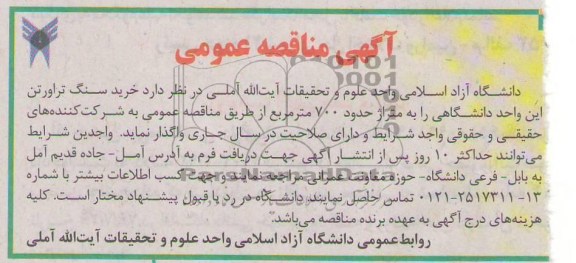 آگهی مناقصه عمومی
دانشگاه آزاد اسلامی واحد علوم و تحقیقات آیت‌الله آملی در نظر دارد خرید سنگ تراورتن
این واحد دانشگاهی را به متراژ حدود ۷۰۰ مترمربع از طریق مناقصه عمومی به شرکت‌کننده‌های
حقیقی و حقوقی واجد شرایط و دارای صلاحیت در سال جاری واگذار نماید. واجدین شرایط
می‌توانند حداکثر ۱۰ روز پس از انتشار آگهی جهت دریافت فرم به آدرس آمل- جاده قدیم آمل
به بابل- فرعی دانشگاه- حوزه معاونت عمرانی مراجعه نمایند و جهت کسب اطلاعات بیشتر با شماره
۱۳- ۲۵۱۷۳۱۱-۰۱۲۱ تماس حاصل نمایند. دانشگاه در رد یا قبول پیشنهاد مختار است. کلیه
هزینه‌های درج آگهی به عهده برنده مناقصه می‌باشد.
روابط‌عمومی دانشگاه آزاد اسلامی واحد علوم و تحقیقات آیت‌الله آملی